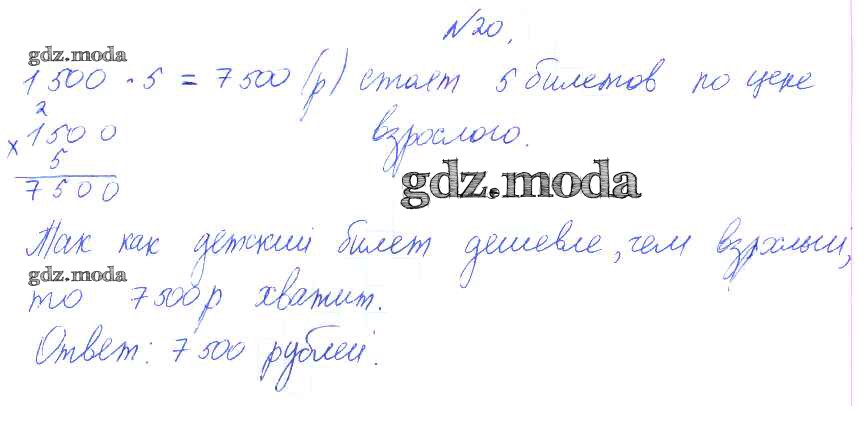 №20.
gdz.moda
1500 · 5 = 7500 (р) стоят 5 билетов по цене
2
× 1500 взрослого.
5
7500
gdz.moda
Так как детский билет дешевле, чем взрослый,
gdz.moda
то 7500р хватит.
Ответ: 7500 рублей.